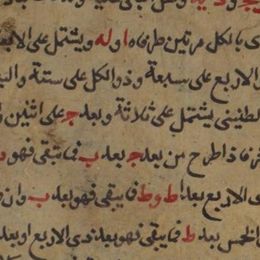 ى بالكل مرتين طرفاه ا و له ويشتمل على الاربع
والاربع على سبعة وذو الكل على ستة والبـ
الطنينى يشتمل على ثلاثة وبعد ج على اثنين
فاذا طرح من بعد ج بعد ب فما تبقى فهو
ى الاربع بعد ا ط و ط فما يبقى فهو بعد ب وان
الخمس بعد ط فما يبقى فهو بعد ذى الاربع او بعد